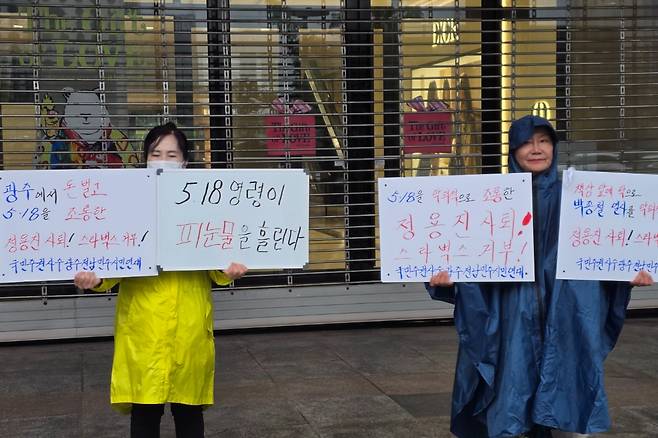 광주에서 돈벌고
5·18을 조롱한
정용진 사퇴! 스타벅스 거부!
국민주권사수광주전남민주시민연대
518 영령이
피눈물을 흘린다
5·18을 조롱한
정용진 사퇴!
스타벅스 거부!
국민주권사수광주전남민주시민연대
책상 탁으로
박종철 열사를
정용진 사퇴! 스타
국민주권사수광주전남민
The Gift
of LOVE
The Gift
of LOVE
The Gift
of LOVE